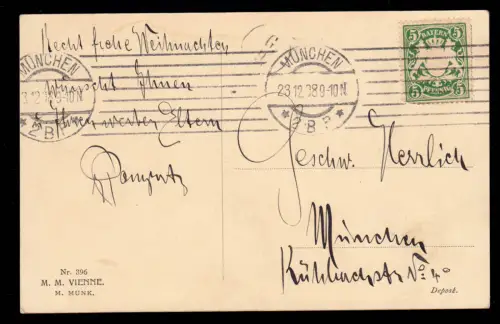 Recht frohe Weihnachten
wünscht Ihnen
Ihren werten Eltern
MÜNCHEN
23.12.08 9-10N
* 2.B.P. *
MÜNCHEN
23.12.08 9-10N
* 2.B.P. *
5 BAYERN 5
5 PFENNIG 5
Geschw. Herrlich
München
Kühbachstr No. 4°
Nr. 396
M. M. VIENNE.
M. MUNK.
Depont.